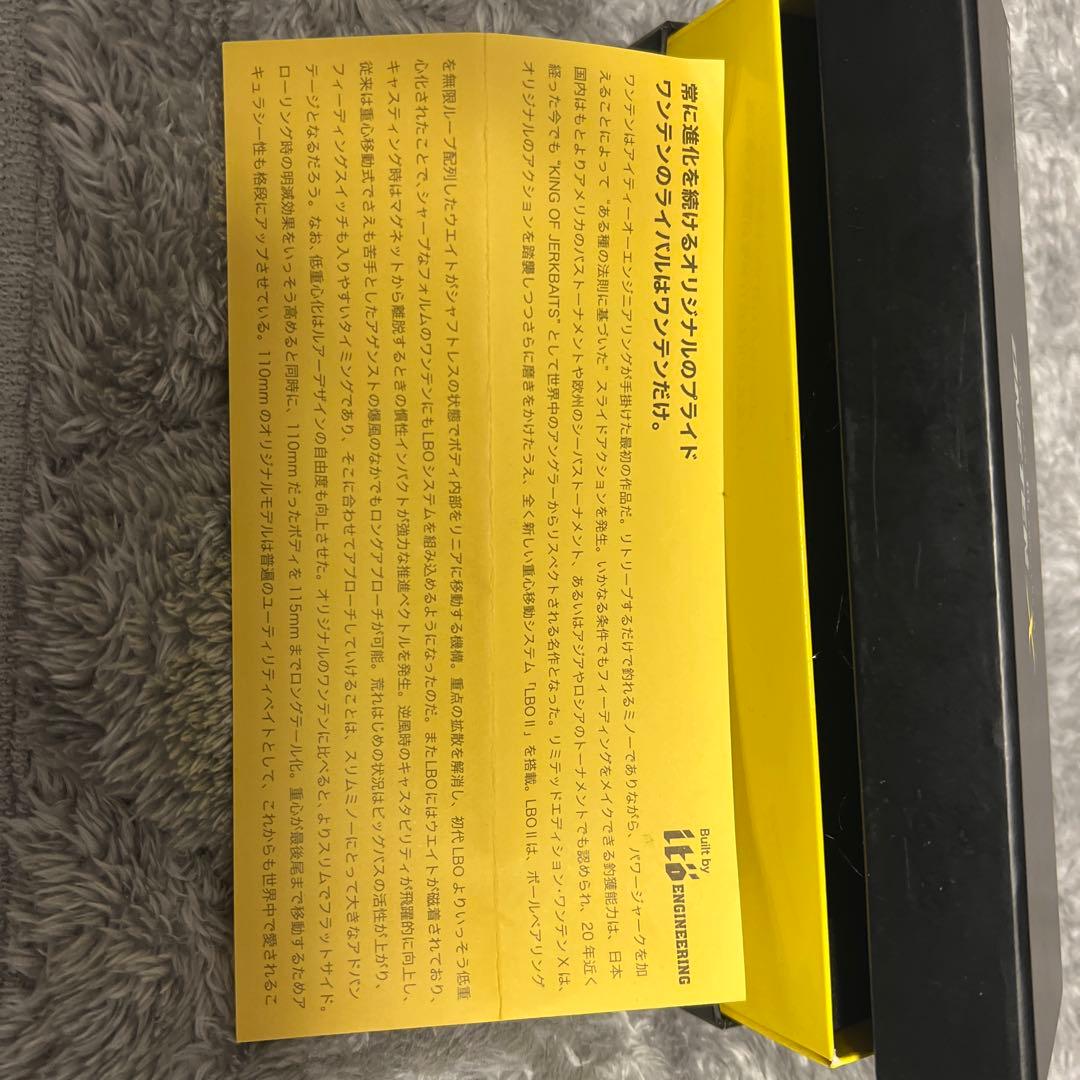 常に進化を続けるオリジナルのプライド
ワンテンのライバルはワンテンだけ。
Built by
ito ENGINEERING
ワンテンはアイティーオーエンジニアリングが手掛けた最初の作品だ。リトリーブするだけで釣れるミノーでありながら、パワージャークを加
えることによって“ある種の法則に基づいた”スライドアクションを発生。いかなる条件でもフィーディングをメイクできる釣獲能力は、日本
国内はもとよりアメリカのバストーナメントや欧州のシーバストーナメント、あるいはアジアやロシアのトーナメントでも認められ、20年近く
経った今でも“KING OF JERKBAITS”として世界中のアングラーからリスペクトされる名作となった。リミテッドエディション・ワンテンXは、
オリジナルのアクションを踏襲しつつさらに磨きをかけたうえ、全く新しい重心移動システム「LBOⅡ」を搭載。LBOⅡは、ボールベアリング
を無限ループ配列したウエイトがシャフトレスの状態でボディ内部をリニアに移動する機構。重点の拡散を解消し、初代LBOよりいっそう低重
心化されたことで、シャープなフォルムのワンテンにもLBOシステムを組み込めるようになったのだ。またLBOにはウエイトが磁着されており、
キャスティング時はマグネットから離脱するときの慣性インパクトが強力な推進ベクトルを発生。逆風時のキャスタビリティが飛躍的に向上し、
従来は重心移動式でさえも苦手としたアゲンストの爆風のなかでもロングアプローチが可能。荒れはじめの状況はビッグバスの活性が上がり、
フィーディングスイッチも入りやすいタイミングであり、そこに合わせてアプローチしていけることは、スリムミノーにとって大きなアドバン
テージとなるだろう。なお、低重心化はルアーデザインの自由度も向上させた。オリジナルのワンテンに比べると、よりスリムでフラットサイド。
ローリング時の明滅効果をいっそう高めると同時に、110mmだったボディを115mmまでロングテール化。重心が最後尾まで移動するためア
キュラシー性も格段にアップさせている。110mmのオリジナルモデルは普遍のユーティリティベイトとして、これからも世界中で愛されるこ